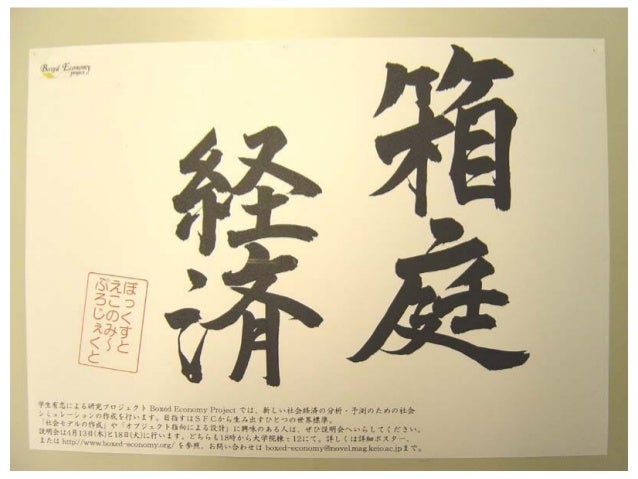 Boxed Economy
project
箱庭
経済
ぼっくすと
えこのみ〜
ぷろじぇくと
学生有志による研究プロジェクト Boxed Economy Project では、新しい社会経済の分析・予測のための社会
シミュレーションの作成を行います。目指すはSFCから生み出すひとつの世界標準。
「社会モデルの作成」や「オブジェクト指向による設計」に興味のある人は、ぜひ説明会へいらしてください。
説明会は4月13日(木)と18日(火)に行います。どちらも18時から大学院棟τ12にて。詳しくは詳細ポスター、
または http://www.boxed-economy.org/ を参照。お問い合わせは boxed-economy@novel.mag.keio.ac.jpまで。